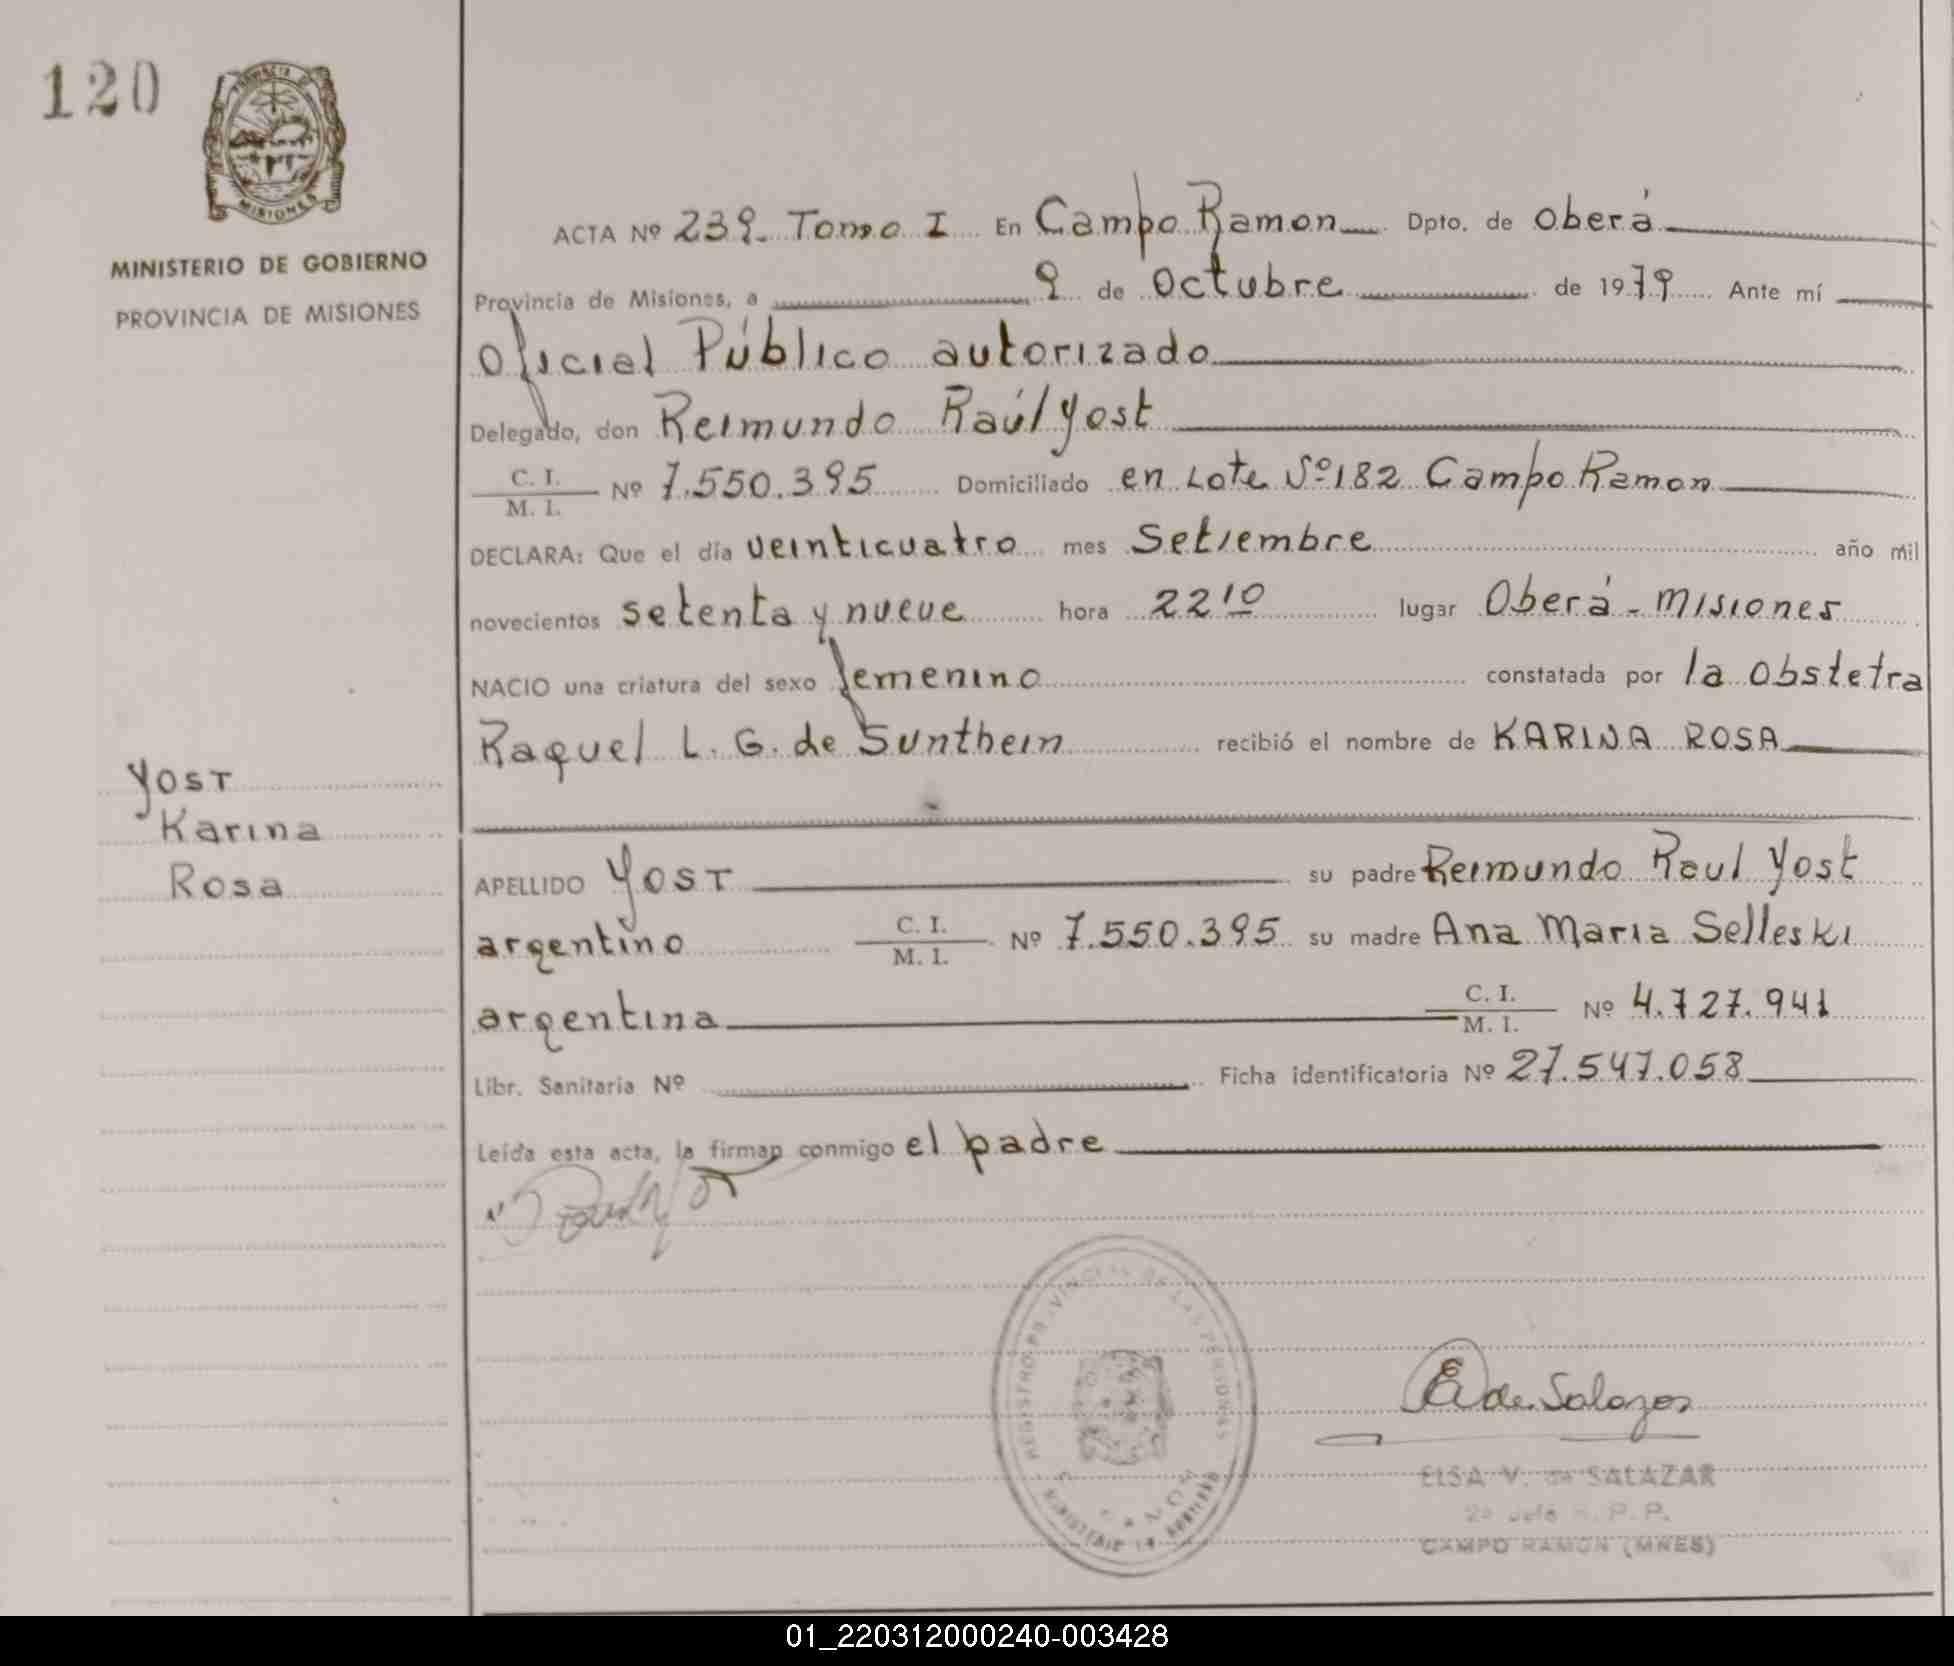 120
PROVINCIA DE
MISIONES
MINISTERIO DE GOBIERNO
PROVINCIA DE MISIONES
ACTA Nº 239 Tomo I En Campo Ramon Dpto. de Oberá
Provincia de Misiones, a 9 de Octubre de 1979 Ante mí
Oficial Público autorizado
Delegado, don Reimundo Raúl Yost
C. I.
M. I. Nº 7.550.395 Domiciliado en Lote Nº 182 Campo Ramon
DECLARA: Que el día veinticuatro mes Setiembre año mil
novecientos setenta y nueve hora 22 10 lugar Oberá - Misiones
NACIO una criatura del sexo femenino constatada por la obstetra
Raquel L. G. de Sunthein recibió el nombre de KARINA ROSA
Yost
Karina
Rosa
APELLIDO Yost su padre Reimundo Raul Yost
argentino C. I.
M. I. Nº 7.550.395 su madre Ana Maria Selleski
argentina C. I.
M. I. Nº 4.727.941
Libr. Sanitaria Nº Ficha identificatoria Nº 27.547.058
Leída esta acta, la firman conmigo el padre
REGISTRO PROVINCIAL DE LAS PERSONAS
E de Salazar
ELSA V. de SALAZAR
2º Jefe R. P. P.
CAMPO RAMON (MNES)
01_220312000240-003428